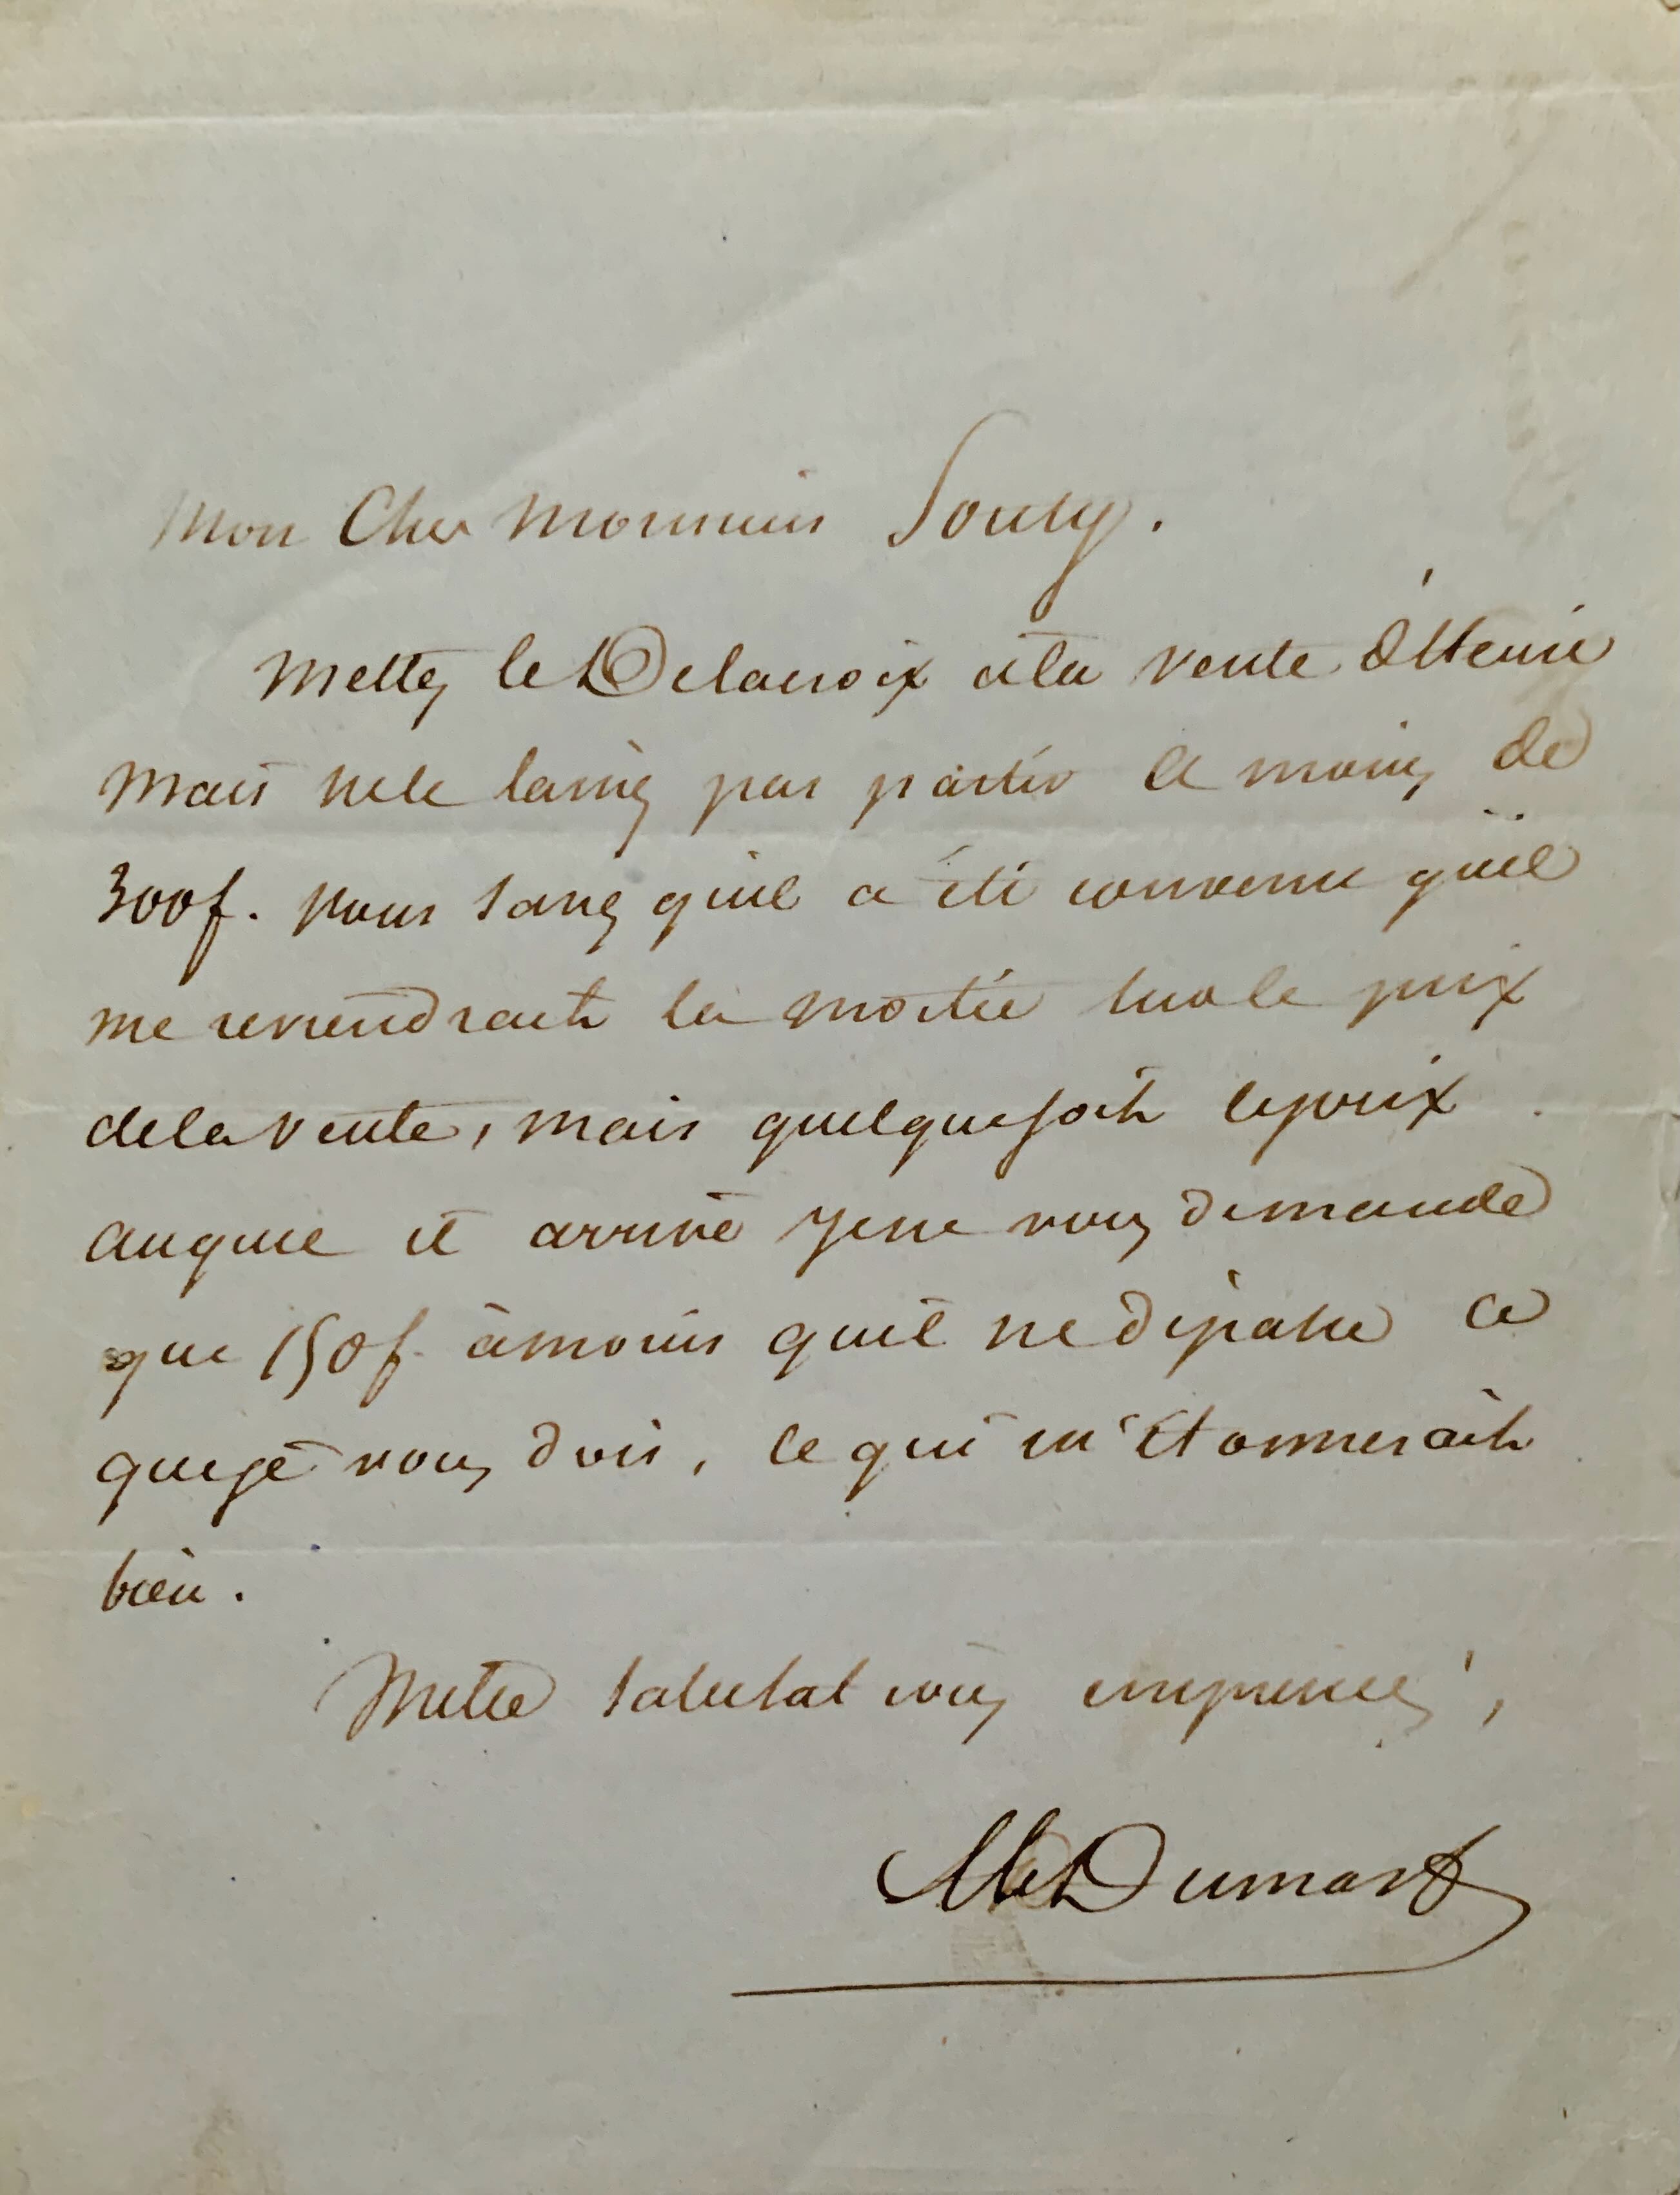 Mon Cher Monsieur Souty.
Mettez le Delacroix à la vente d'Henri
mais ne le laissez pas partir à moins de
300f. vous savez qu'il a été convenu qu'il
me reviendrait la moitié sur le prix
de la vente, mais quelque soit le prix
auquel il arrive je ne vous demande
que 150f. à moins qu'il ne dépasse ce
que je vous dois, ce qui m'étonnerait
bien.
Mille salutations empressées,
Alex Dumas